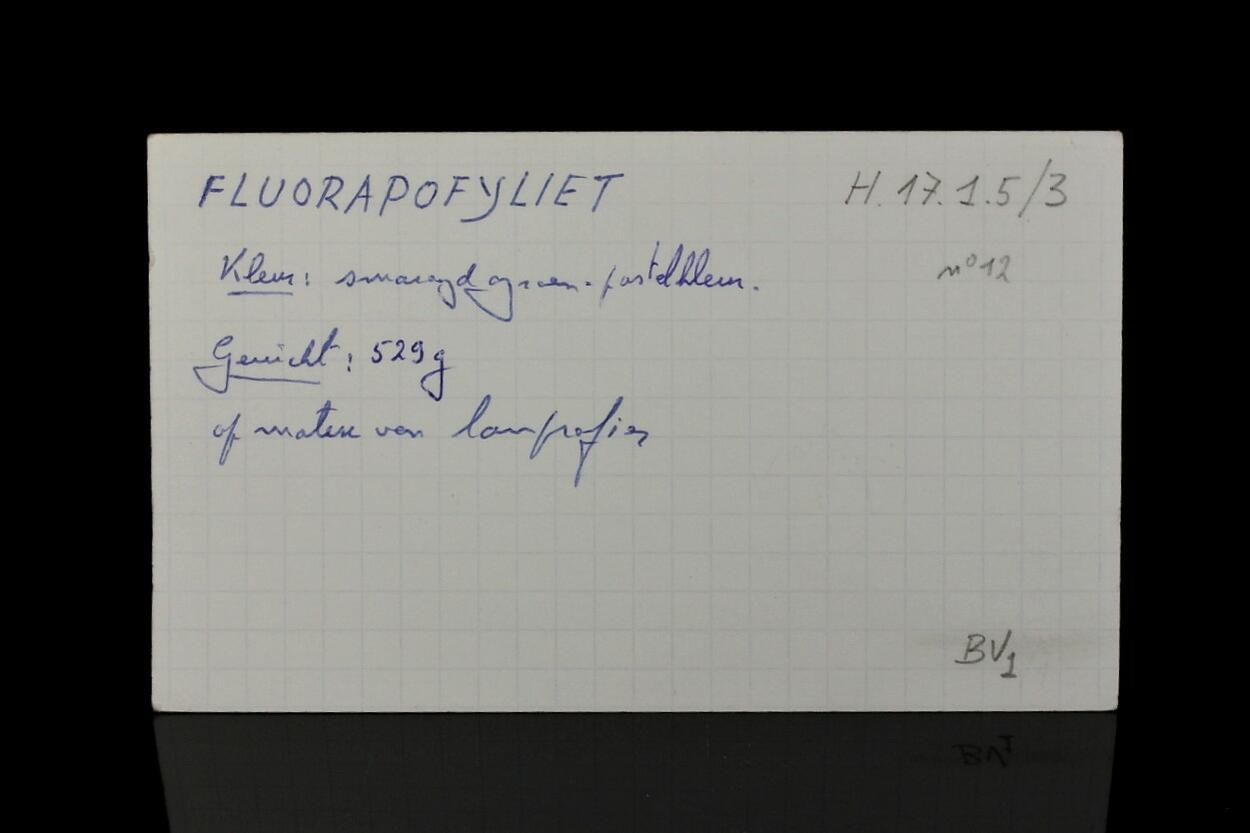 FLUORAPOFYLIET
H.17.1.5/3
Kleur: smaragdgroen-pastelkleur.
n° 12
Gewicht: 529g
op matrix van lamprofier
BV1